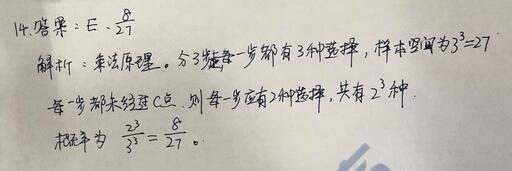 14.答案:E.8/27
解析:乘法原理。分3步走每一步都有3种选择,样本空间为3³=27
每一步都未经过C点.则每一步应有2种选择,共有2³种.
概率为 2³/3³=8/27。